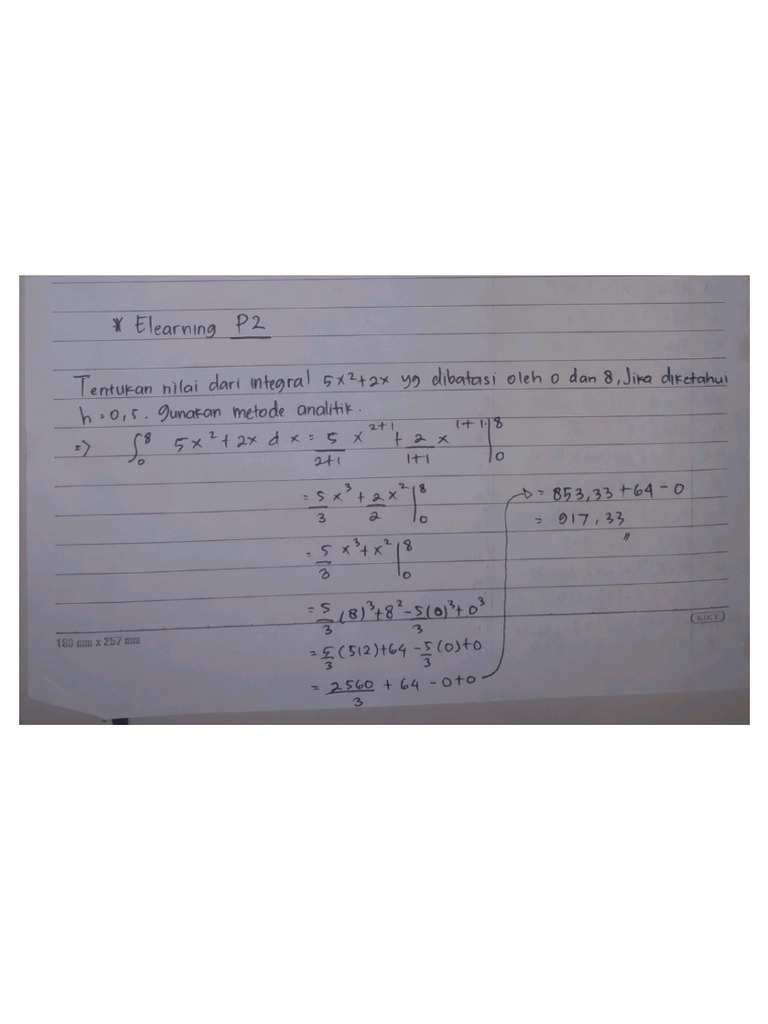 * Elearning P2
Tentukan nilai dari integral 5x² + 2x yg dibatasi oleh 0 dan 8, Jika diketahui
h = 0,5. gunakan metode analitik.
=> ∫₀⁸ 5x² + 2x dx = 5/(2+1) x²⁺¹ + 2/(1+1) x¹⁺¹ |₀⁸
= 5/3 x³ + 2/2 x² |₀⁸
= 5/3 x³ + x² |₀⁸
= 5/3 (8)³ + 8² - 5(0)³/3 + 0³
= 5/3 (512) + 64 - 5/3 (0) + 0
= 2560/3 + 64 - 0 + 0
= 853,33 + 64 - 0
= 917,33 //
KIKY
180 mm x 257 mm